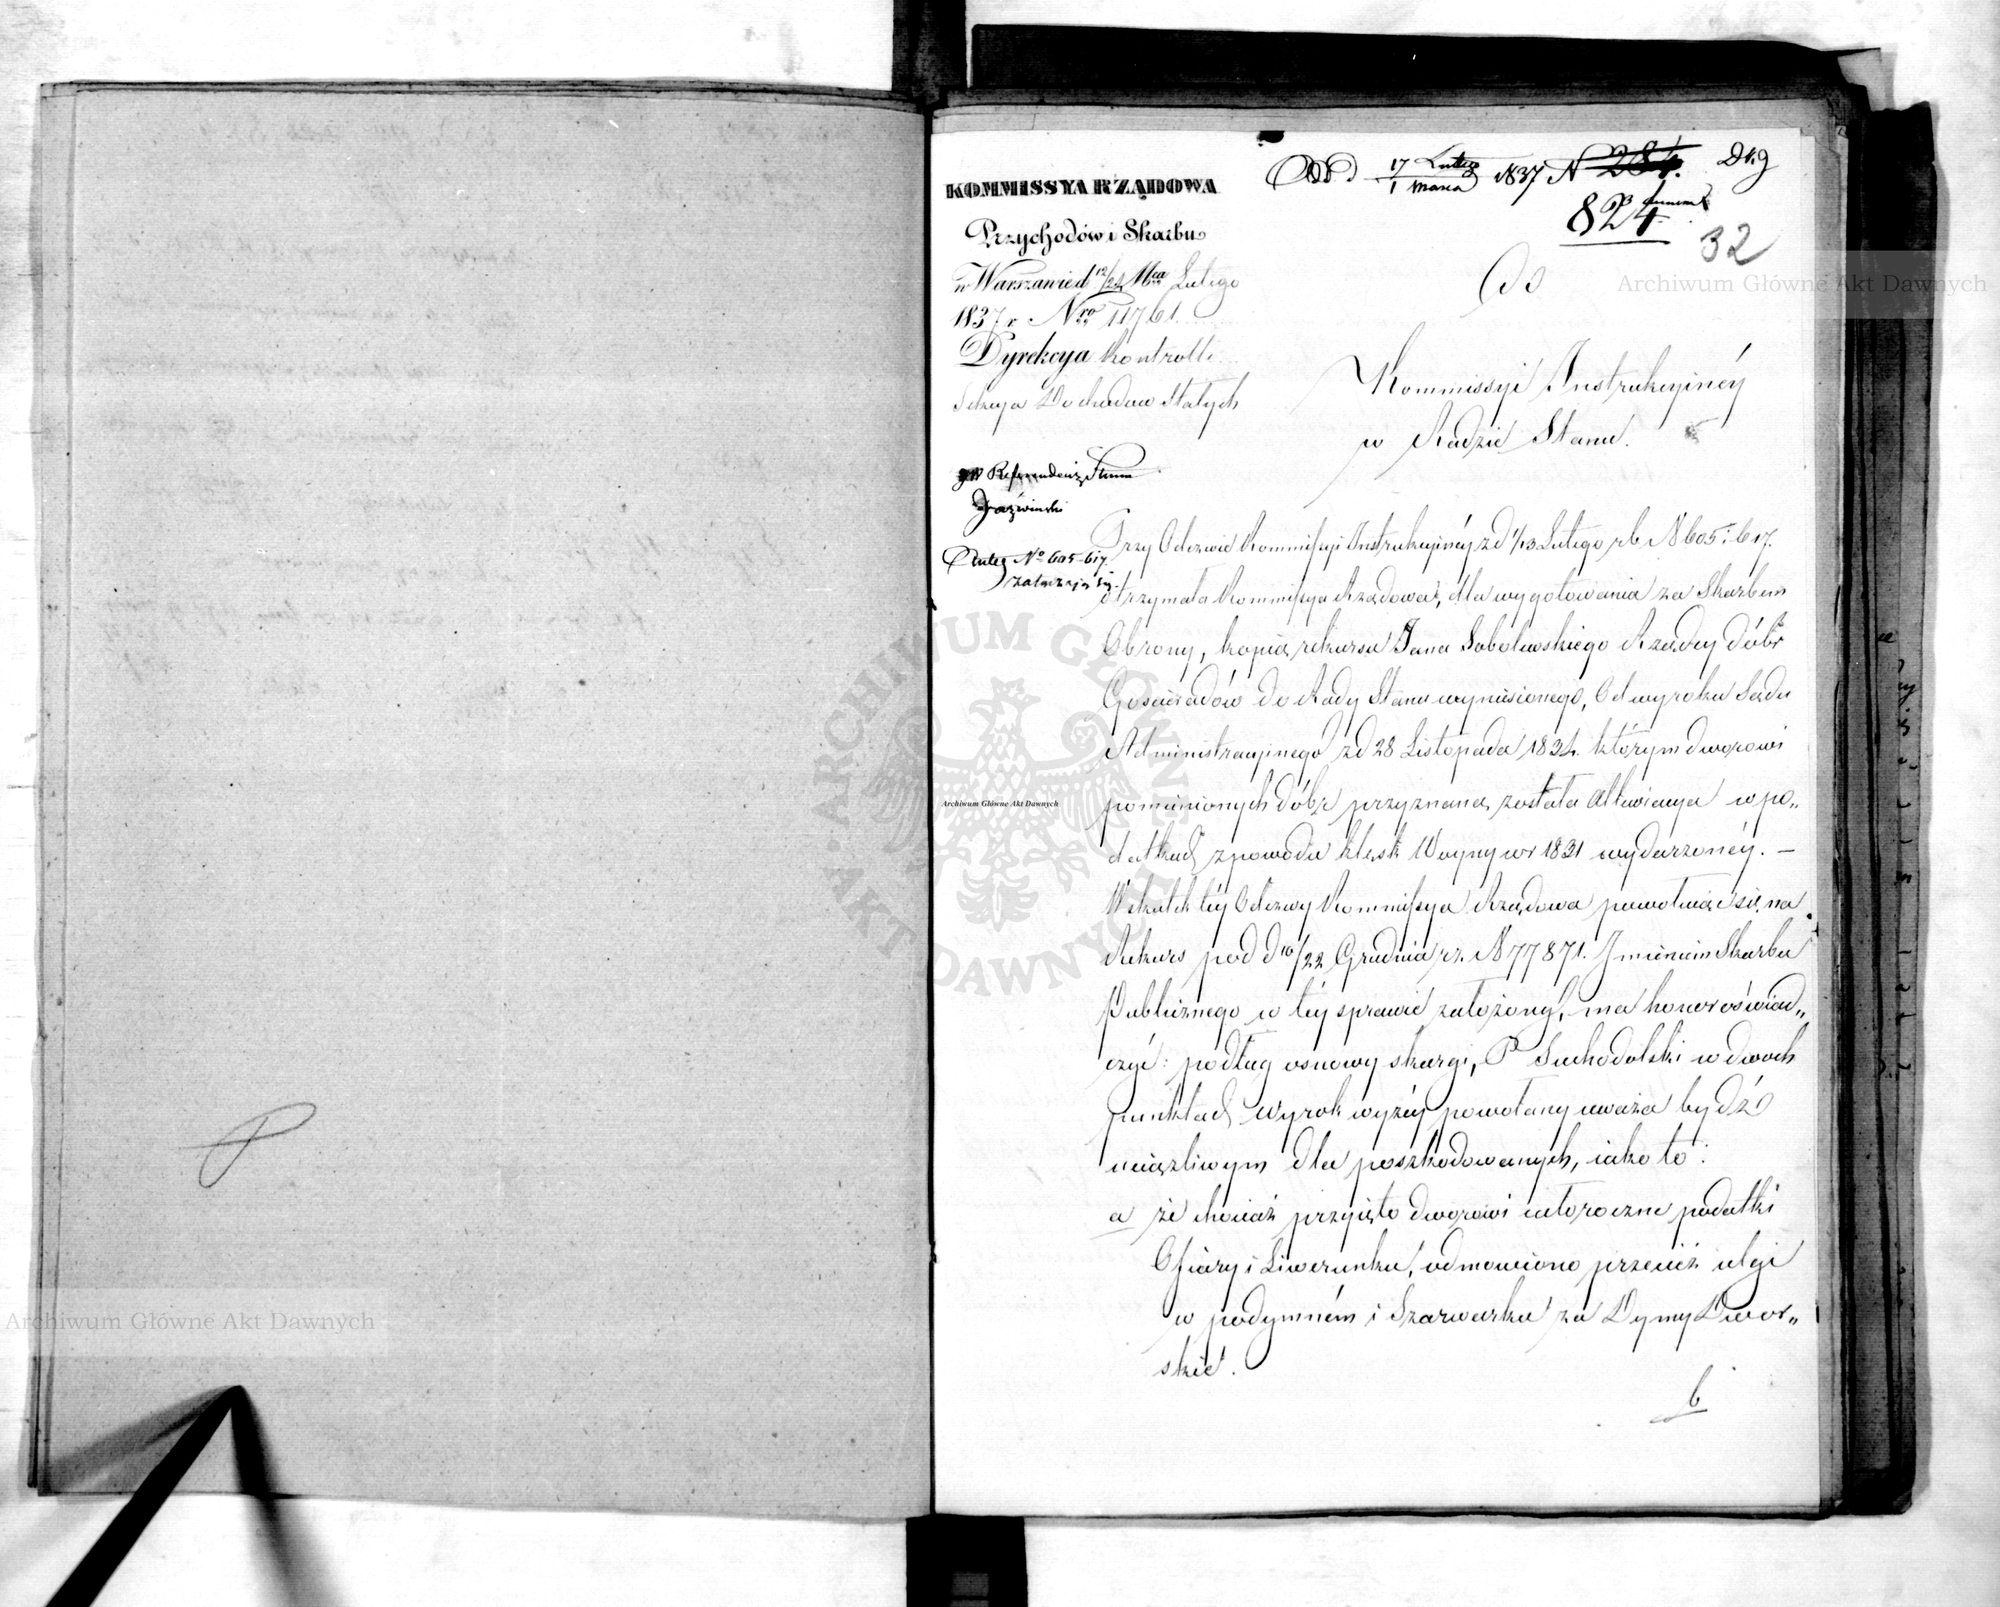 KOMMISSYA RZĄDOWA
Przychodów i Skarbu
w Warszawie d 12/24 Mca Lutego
1837 r. Nro 11761.
Dyrekcya Kontrolli
Sekcya Dochodów Stałych
17 Lutego / 1 Marca 1837 N 284.
824
32
Do
Kommissyi Instrukcyinéy
w Radzie Stanu.
JW Referendarz Stanu
Jaźwiński
No 605-617.
załączają się.
Przy Odezwie Kommissyi Instrukcyinéy z d 1/13 Lutego r b N 605 i 617.
otrzymała Kommissya Rządowa, dla wygotowania za Skarbem
Obrony, kopią rekursu Jana Sobolewskiego Rządcy dóbr
Gościeradów do Rady Stanu wyniesionego, Od wyroku Sądu
Administracyinego z d 28 Listopada 1834. którym dworowi
pomienionych dóbr przyznaną została allewiacya w po„
datkach z powodu klęsk Woyny w r 1831 wydarzonéy. —
W skutek téy Odezwy Kommissya Rządowa powołuiąc się na
Rekurs pod d 10/22 Grudnia r z. N 77871. Imieniem Skarbu
Publicznego w téy sprawie założony, ma honor oświad„
czyć: podług osnowy skargi, P Suchodolski w dwóch
punktach wyrok wyżéy powołany uważa bydź
uciążliwym dla poszkodowanych, iako to:
a że chociaż przyięto dworowi całoroczne podatki
Ofiary i Liwerunku, odmówiono przecież ulgi
w podymném i Szarwarku za Dymy Dwor„
skie.
b
Archiwum Główne Akt Dawnych
Archiwum Główne Akt Dawnych
Archiwum Główne Akt Dawnych
ARCHIWUM GŁÓWNE AKT DAWNYCH